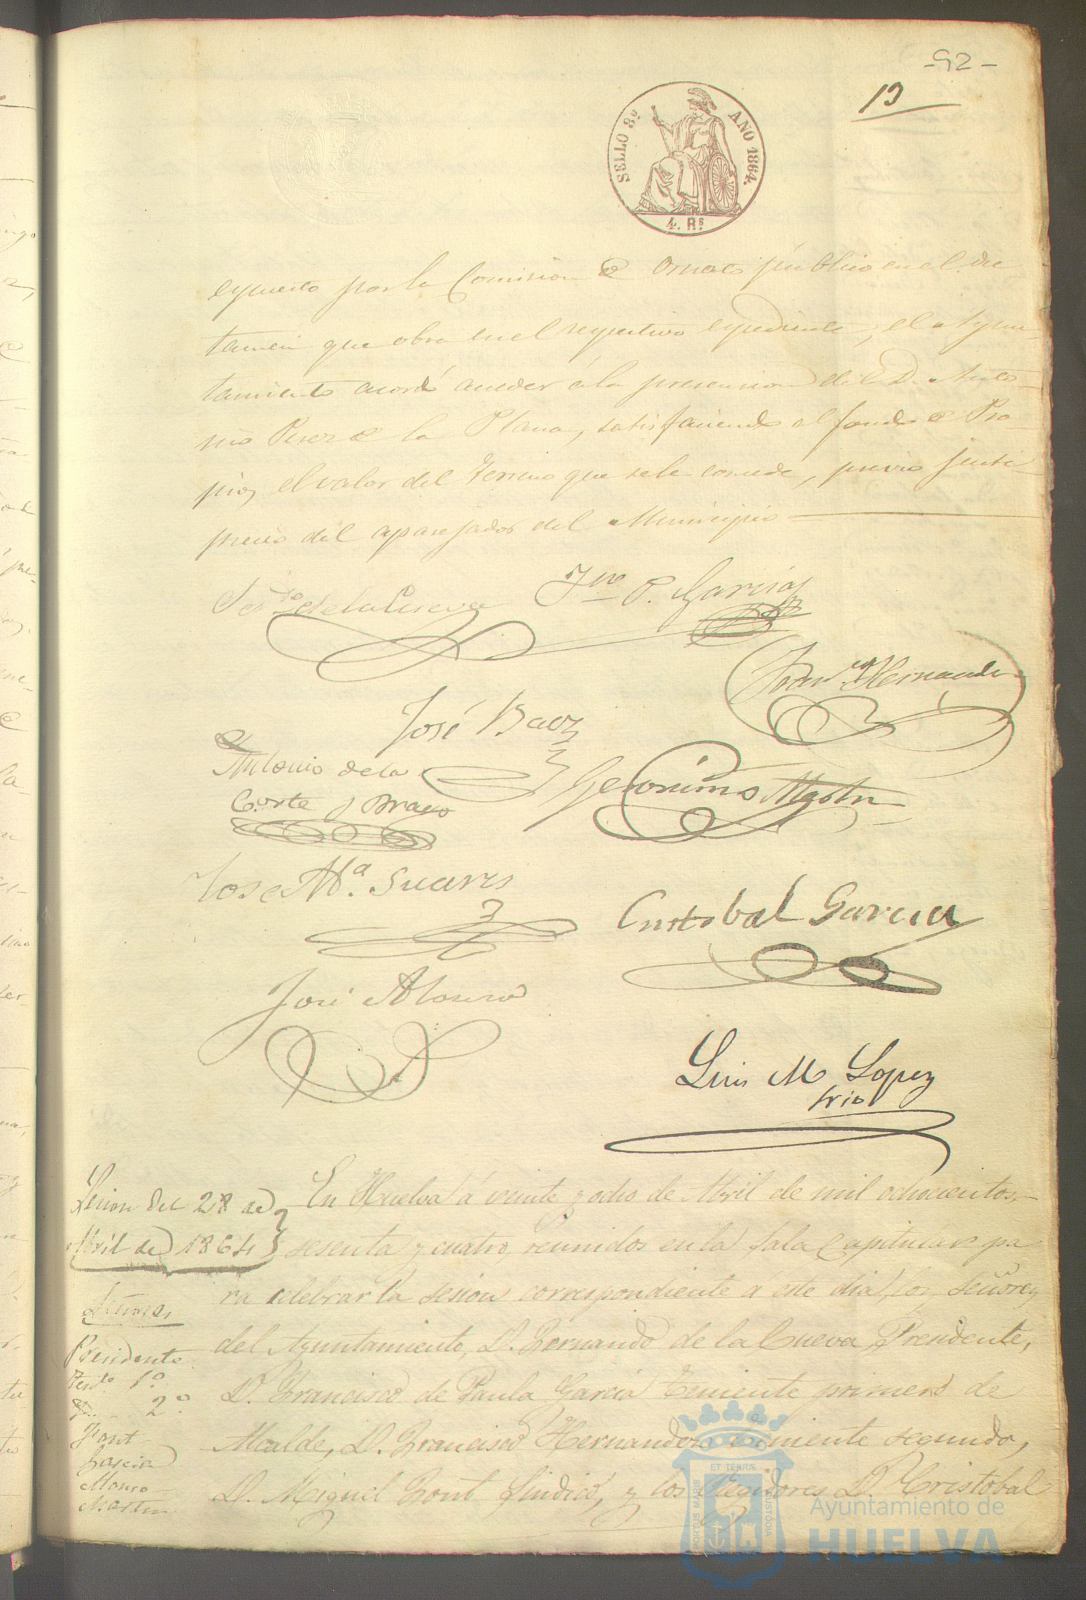 -92-
19
SELLO 8º AÑO 1864.
4. Rs
espuesto por la Comision de Ornato público en el dic
tamen que obra en el respectivo espediente, el Ayun
tamiento acordó acceder á la pretension del D. Anto-
nio Perez de la Plana, satisfaciendo al fondo de Pro-
pios, el valor del terreno que se le concede, previo justi
precio del aparejador del Municipio
Ferdo de la Cueva
Fco P. García
Franco Hernandez
José Baez
Antonio de la
Corte y Bravo
Geronimo Martin
José Mª. Suares
Cristobal Garcia
José Alonso
Luis M Lopez
Srio
Sesion del 28 de
Abril de 1864
Señores,
Presidente
Tente 1º.
Id. 2º
Font
Garcia
Alonso
Martin
En Huelva á veinte y ocho de Abril de mil ochocientos
sesenta y cuatro, reunidos en la Sala Capitular pa
ra celebrar la sesion correspondiente á este dia los señores
del Ayuntamiento, D. Fernando de la Cueva Presidente,
D. Francisco de Paula García Teniente primero de
Alcalde, D. Francisco Hernandez teniente segundo,
D. Miguel Font Sindico, y los Regidores D. Cristobal
Ayuntamiento de
HUELVA